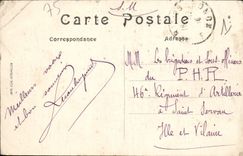 75
F.M
N
Carte Postale
Correspondance
Adresse
MM Les brigadiers et sous-officiers
du P.H.R
46e Régiment d'Artillerie
à Saint Servan
Ille et Vilaine
Meilleurs
et bon